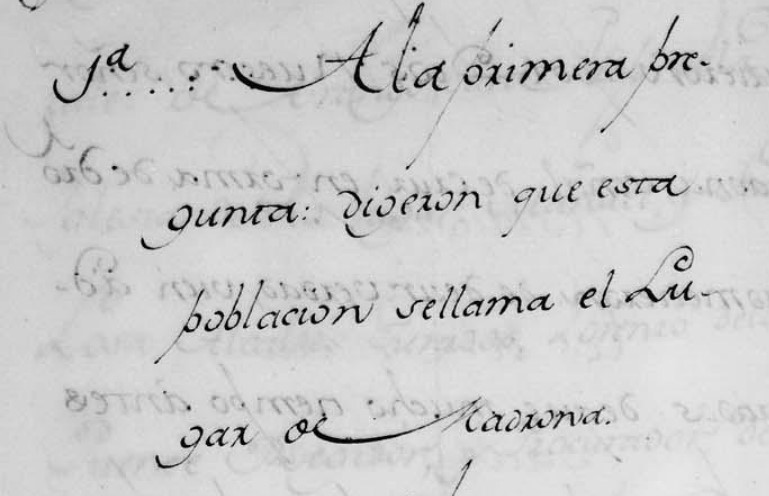 1ª..... A la primera pre-
gunta: dijeron que esta
poblacion sellama el Lu-
gar de Madrona.